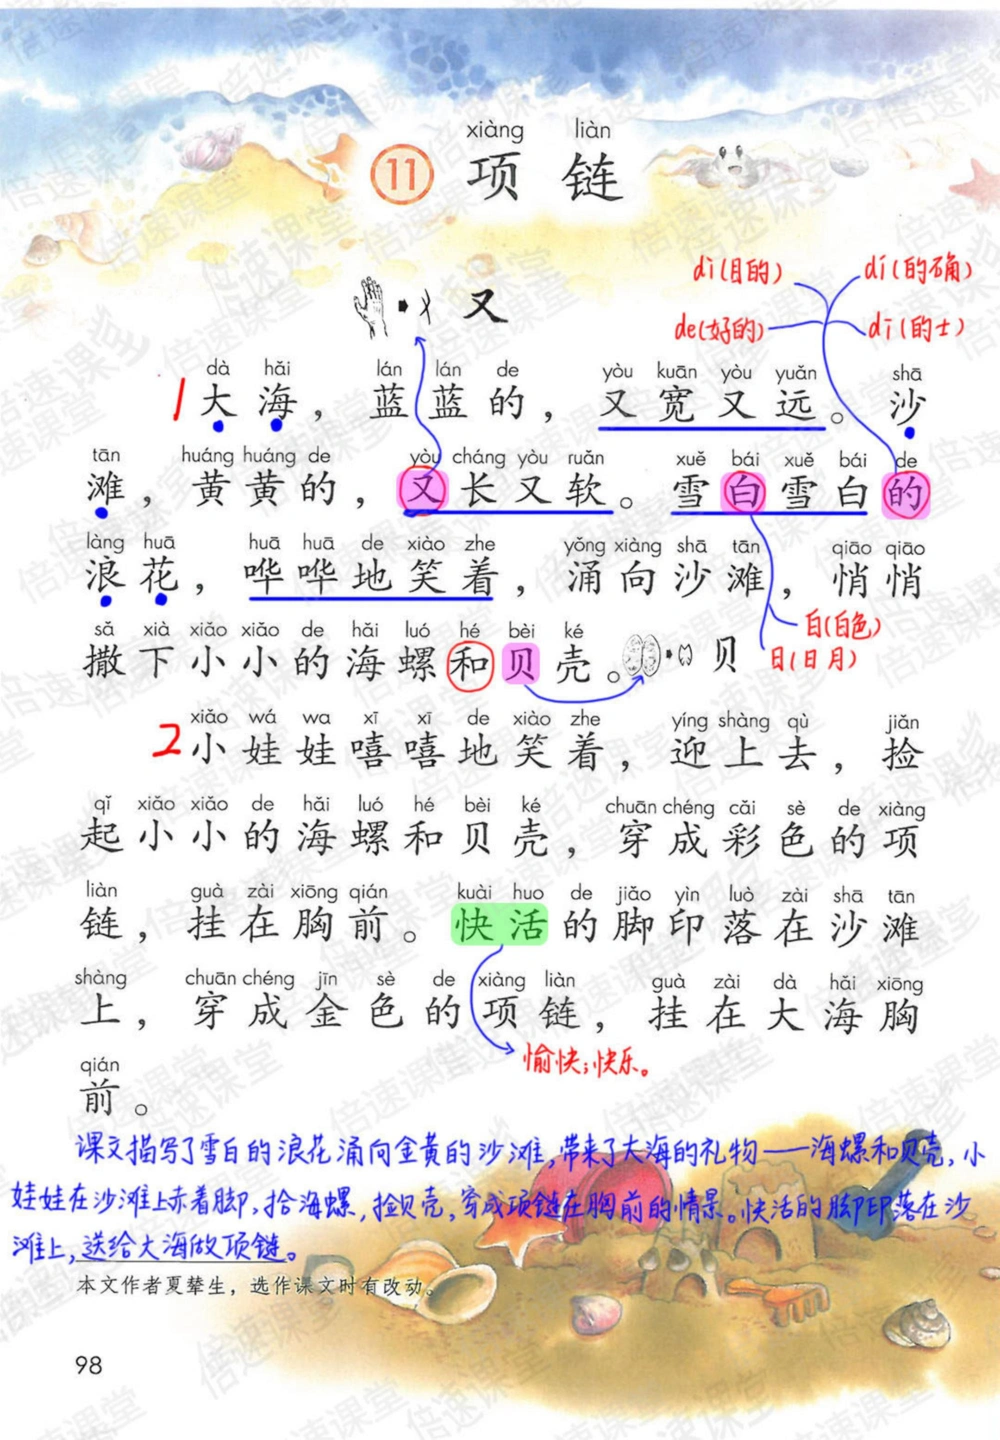 xiàng liàn
11 项链
dì(目的) dí(的确)
de(好的) dī(的士)
又
dà hǎi lán lán de yòu kuān yòu yuǎn shā
1 大海，蓝蓝的，又宽又远。沙
tān huáng huáng de yòu cháng yòu ruǎn xuě bái xuě bái de
滩，黄黄的，又长又软。雪白雪白的
làng huā huā huā de xiào zhe yǒng xiàng shā tān qiāo qiāo
浪花，哗哗地笑着，涌向沙滩，悄悄
sǎ xià xiǎo xiǎo de hǎi luó hé bèi ké
撒下小小的海螺和贝壳。 贝
白(白色)
日(日月)
xiǎo wá wa xī xī de xiào zhe yíng shàng qù jiǎn
2 小娃娃嘻嘻地笑着，迎上去，捡
qǐ xiǎo xiǎo de hǎi luó hé bèi ké chuān chéng cǎi sè de xiàng
起小小的海螺和贝壳，穿成彩色的项
liàn guà zài xiōng qián kuài huo de jiǎo yìn luò zài shā tān
链，挂在胸前。快活的脚印落在沙滩
shàng chuān chéng jīn sè de xiàng liàn guà zài dà hǎi xiōng
上，穿成金色的项链，挂在大海胸
愉快；快乐。
qián
前。
课文描写了雪白的浪花涌向金黄的沙滩，带来了大海的礼物——海螺和贝壳，小
娃娃在沙滩上赤着脚，拾海螺，捡贝壳，穿成项链在胸前的情景。快活的脚印落在沙
滩上，送给大海做项链。
本文作者夏辇生，选作课文时有改动。
98
倍速课堂